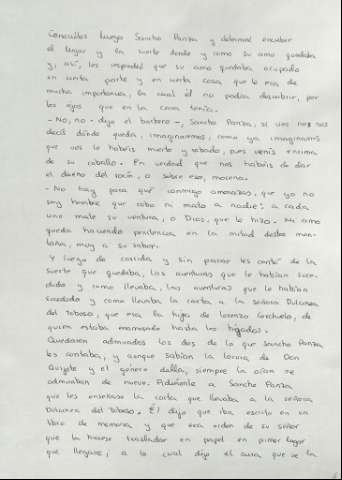 Conociólos luego Sancho Panza y determinó encubrir
el lugar y la suerte donde y como su amo quedaba
y, así, les respondió que su amo quedaba ocupado
en cierta parte y en cierta cosa que le era de
mucha importancia, la cual él no podía descubrir, por
los ojos que en la cara tenía.
- No, no - dijo el barbero -, Sancho Panza, si vos no nos
decís dónde queda, imaginaremos, como ya imaginamos
que vos le habéis muerto y robado, pues venís encima
de su caballo. En verdad que nos habéis de dar
el dueño del rocín, o sobre eso, morena.
- No hay para qué conmigo amenazas, que yo no
soy hombre que robo ni mato a nadie: a cada
uno mate su ventura, o Dios, que le hizo. Mi amo
queda haciendo penitencia en la mitad desta mon-
taña, muy a su sabor.
Y luego de corrida y sin parar les contó de la
suerte que quedaba, las aventuras que le habían suce-
dido y como llevaba, las aventuras que le habían
sucedido y como llevaba la carta a la señora Dulcinea
del Toboso, que era la hija de Lorenzo Corchuelo, de
quien estaba enamorado hasta los hígados.
Quedaron admirados los dos de lo que Sancho Panza
les contaba, y aunque sabían la locura de Don
Quijote y el género della, siempre la oían se
admiraban de nuevo. Pidiéronle a Sancho Panza
que les enseñase la carta que llevaba a la señora
Dulcinea del Toboso. Él dijo que iba escrita en un
libro de memoria y que era orden de su señor
que la hiciese trasladar en papel en primer lugar
que llegase, a lo cual dijo el cura que se la